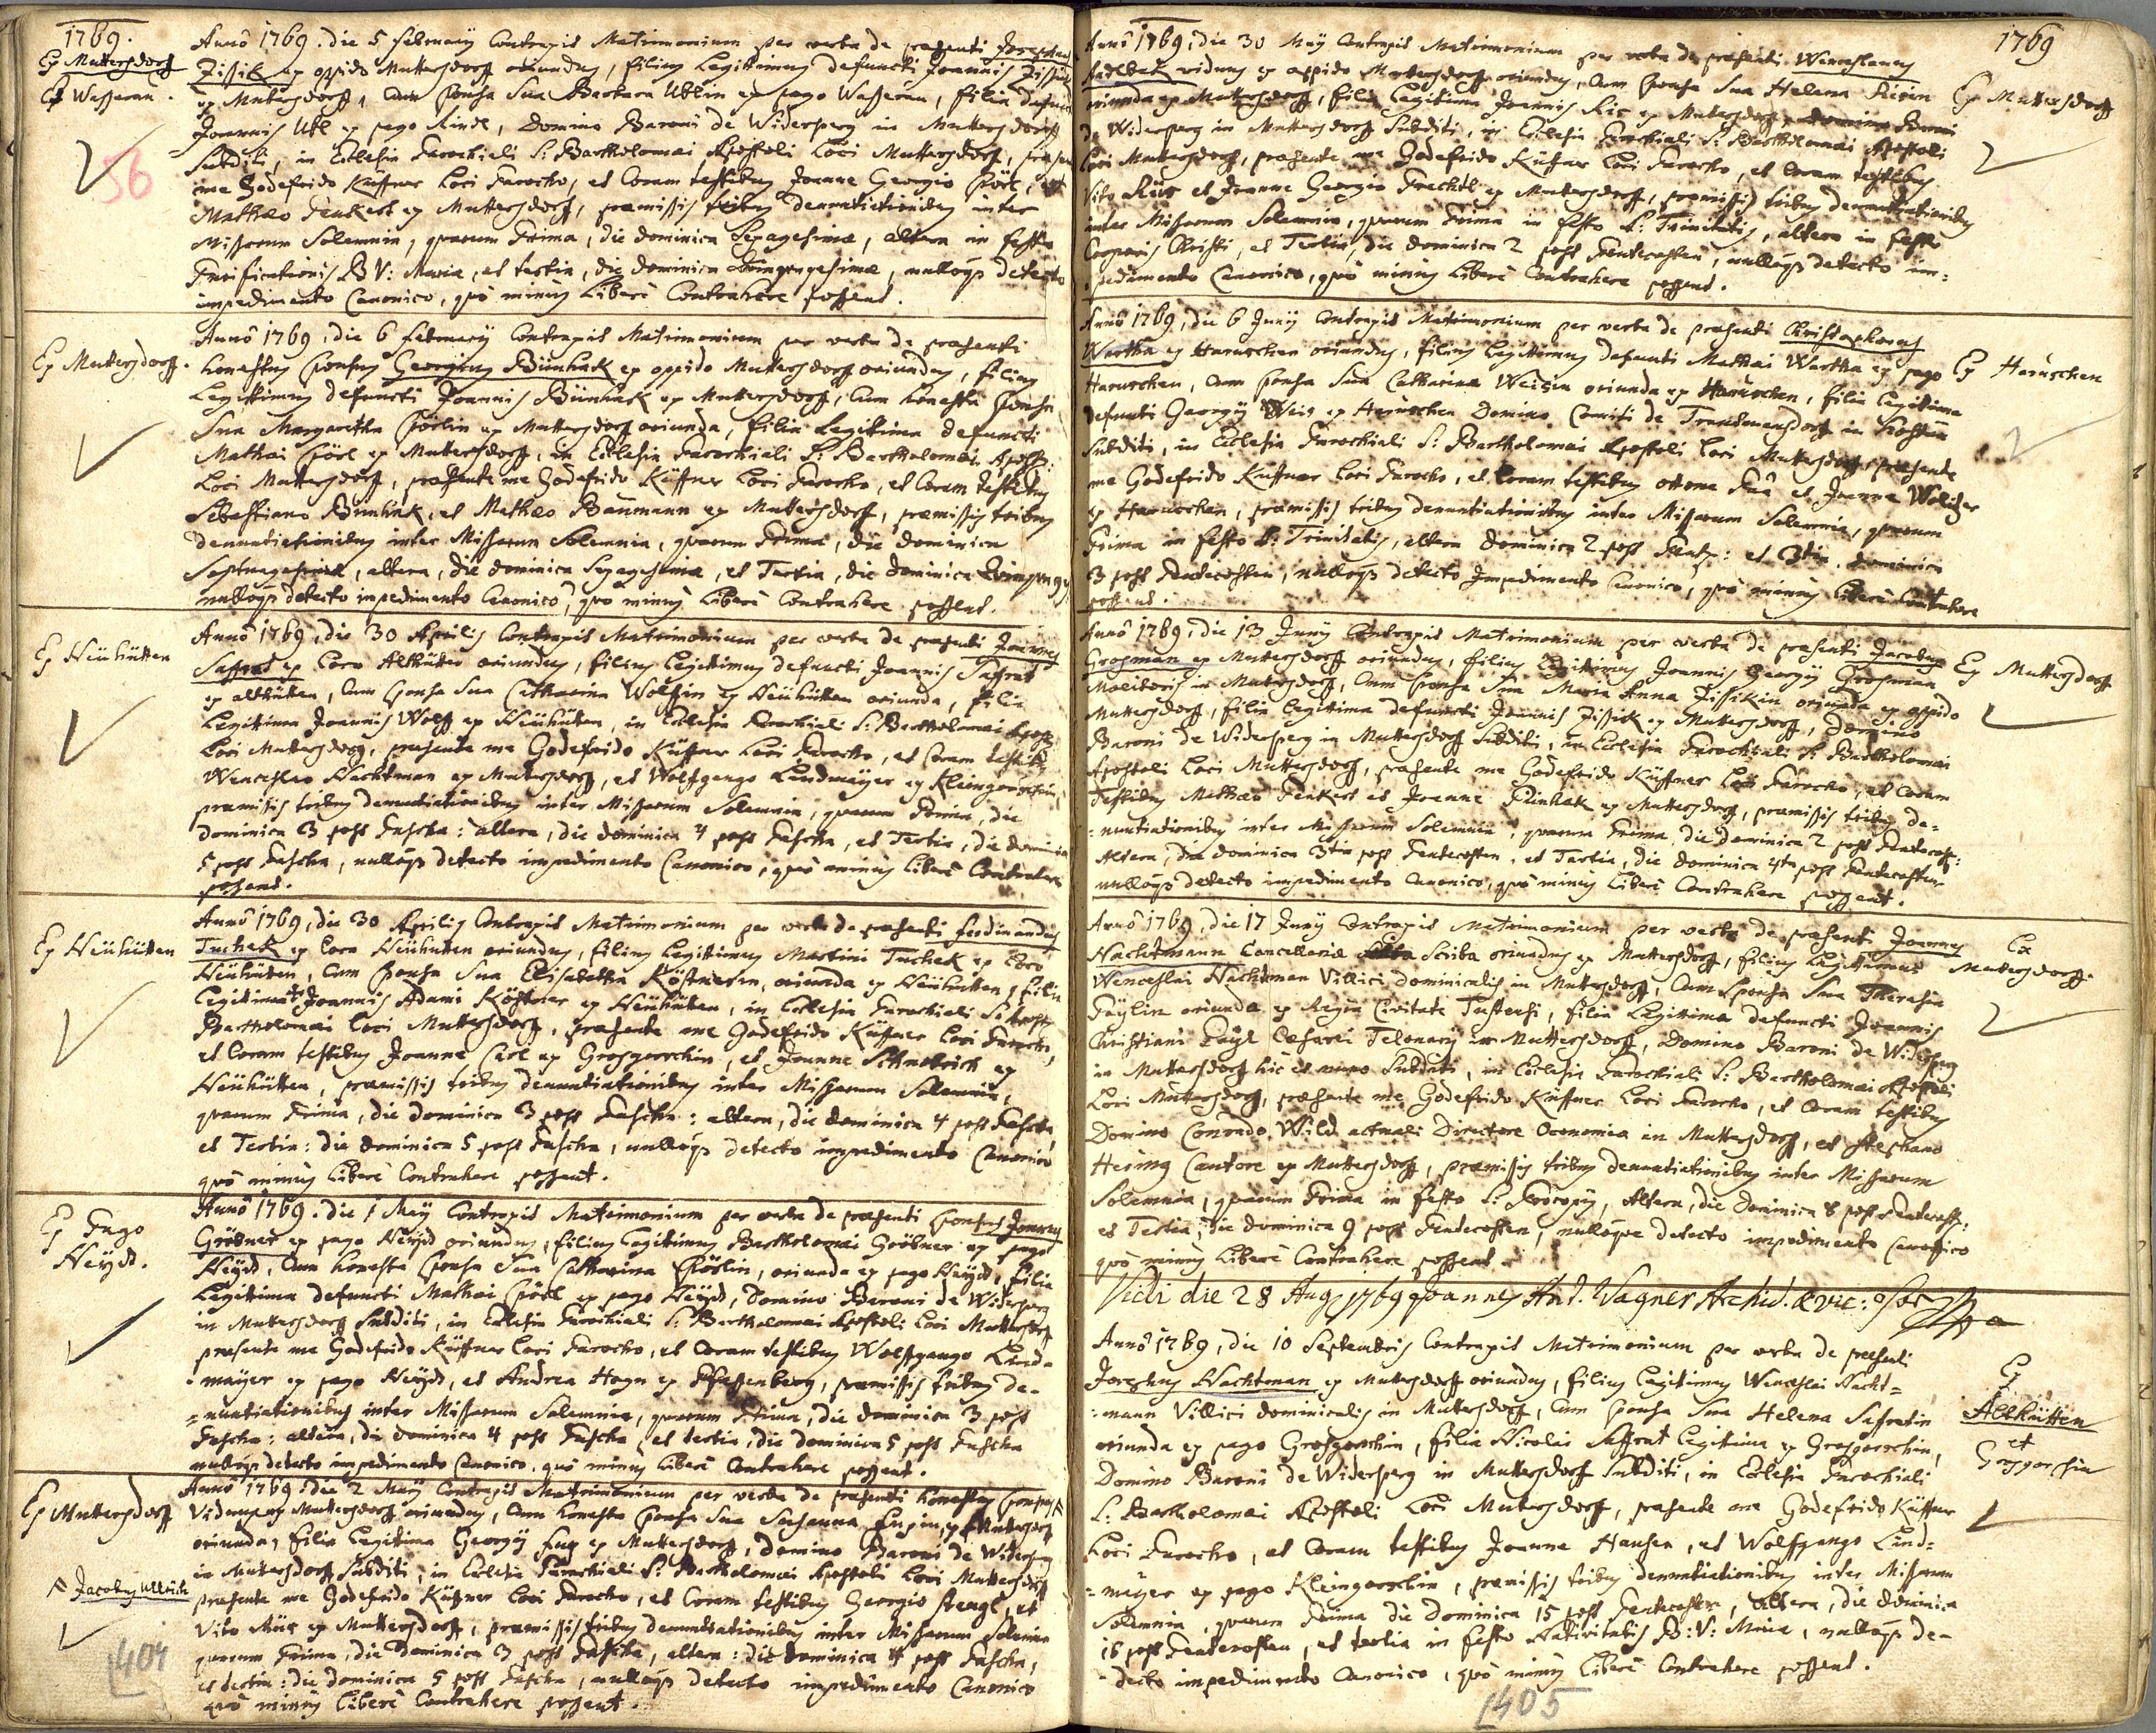 1769.
Ex Muttersdorf
Ex Wasserau.
56
Anno 1769. die 5 februarij Contraxit Matrimonium per verba de praesenti
Zissik ex oppido Muttersdorff oriundus, filius Legittimus defuncti Joannis Zissik
ex Muttersdorff, Cum sponsa Sua Barbara Ublin ex pago Wasserau, filia
Joannis Ubl ex pago, Domino Baroni de Widersperg in Muttersdorff
Subditi, in Ecclesia Parochiali S: Bartholomaei Apostoli Loci Muttersdorff,
me Godefrido Küffner Loci Parocho, et Coram testibus Joanne Georgio Spörl, et
Mathaeo Penkert ex Muttersdorff, praemissis tribus denuntiationibus inter
Missarum Solemnia, quarum Prima, die dominica Sexagesimae, altera in festo
Purificationis B V: Mariae, et tertia, die dominica Quinquagesimae, nulloq3 detecto
impedimento Canonico, quò minus Liberè Contrahere possent.
Ex Muttersdorff.
Anno 1769, die 6 februarij Contraxit Matrimonium per verba de praesenti
honestus sponsus Georgius Bünhak ex oppido Muttersdorff oriundus, filius
Legittimus defuncti Joannis Bünhak ex Muttersdorff, Cum honesta sponsa
Sua Margaretha Spörlin ex Muttersdorff oriunda, filia Legitima defuncti
Mathaei Spörl ex Muttersdorff, in Ecclesia Parochiali S: Bartholomaei Apost:
Loci Muttersdorff, praesente me Godefrido Küffner Loci Parocho, et Coram testibus
Sebastiano Bünhak, et Mathaeo Baumann ex Muttersdorff, praemissis tribus
denuntiationibus inter Missarum Solemnia, quarum Prima, die dominica
Septuagesimae, altera, die dominica Sexagesimae, et Tertia, die dominica
nulloq3 detecto impedimento Canonico, quò minus Liberè Contrahere possent.
Ex Neühütten
Anno 1769, die 30 Aprilis Contraxit Matrimonium per verba de praesenti Joannes
Saffrat ex Loco Althütten oriundus, filius Legittimus defuncti Joannis Saffrat
ex althütten, Cum sponsa Sua Catharina Wolffin ex Neühütten oriunda, filia
Legittima Joannis Wolff ex Neühütten, in Ecclesia Parochiali S: Bartholomaei Apost:
Loci Muttersdorff, praesente me Godefrido Küffner Loci Parocho, et Coram testibus
Wenceslao Nachtman ex Muttersdorff, et Wolffgango Lindmaÿer ex Kleingorschin,
praemissis tribus denuntiationibus inter Missarum Solemnia, quarum Prima, die
dominica 3 post Pascha: altera, die dominica 4 post Pascha, et Tertia, die dominica
5 post Pascha, nulloq3 detecto impedimento Canonico, quò minus Liberè Contrahere
possent.
Ex Neühütten
Anno 1769, die 30 Aprilis Contraxit Matrimonium per verba de praesenti ferdinandus
Tuchek ex Loco Neühütten oriundus, filius Legittimus Martini Tuchek ex Loco
Neühütten, Cum sponsa Sua Elisabetha Köstnerin, oriunda ex Neühütten, filia
Legitima Joannis Adami Köstner ex Neühütten, in Ecclesia Parochiali S: Apost:
Bartholomaei Loci Muttersdorff, praesente me Godefrido Küffner Loci Parocho,
et Coram testibus Joanne ex Grosgorschin, et Joanne ex
Neühütten, praemissis tribus denuntiationibus inter Missarum Solemnia,
quarum Prima, die dominica 3 post Pascha: altera, die dominica 4 post Pascha,
et Tertia: die dominica 5 post Pascha, nulloq3 detecto impedimento Canonico
quò minus Liberè Contrahere possent.
Ex Pago
Neÿd.
Anno 1769. die 1 Maÿ Contraxit Matrimonium per verba de praesenti sponsus Joannes
Gröbner ex pago Neÿd oriundus, filius Legittimus Bartholomaei Gröbner ex pago
Neÿd, Cum honesta sponsa Sua Catharina Spörlin, oriunda ex pago Neÿd, filia
Legittima defuncti Mathaei Spörl ex pago Neÿd, Domino Baroni de Widersperg
in Muttersdorff Subditi, in Ecclesia Parochiali S: Bartholomaei Apostoli Loci Muttersdorff
praesente me Godefrido Küffner Loci Parocho, et Coram testibus Wolffgango Lind-
maÿer ex pago Neÿd, et Andrea Hagn ex, praemissis tribus de-
=nuntiationibus inter Missarum Solemnia, quarum Prima, die dominica 3 post
Pascha: altera, die dominica 4 post Pascha, et tertia, die dominica 5 post Pascha
nulloq3 detecto impedimento Canonico, quò minus Liberè Contrahere possent.
Ex Muttersdorf
Jacobus Ullrich
404
Anno 1769. die 2 Maÿ Contraxit Matrimonium per verba de praesenti honestus sponsus
Viduus ex Muttersdorff oriundus, Cum honesta sponsa Sua Susanna ex Muttersdorff
oriunda, filia Legitima Georgij ex Muttersdorff, Domino Baroni de Widersperg
in Muttersdorff Subditi, in Ecclesia Parochiali S: Bartholomaei Apostoli Loci Muttersdorff
praesente me Godefrido Küffner Loci Parocho, et Coram testibus Georgio Stengl, et
Vito ex Muttersdorff, praemissis tribus denuntiationibus inter Missarum Solemnia
quarum Prima, die Dominica 3 post Pascha, altera: die Dominica 4 post Pascha,
et tertia: die dominica 5 post Pascha, nulloq3 detecto impedimento Canonico
quò minus Liberè Contrahere possent.
1769
Anno 1769, die 30 Maÿ Contraxit Matrimonium per verba de praesenti Wenceslaus
viduus ex oppido Muttersdorff oriundus, Cum sponsa Sua Helena
oriunda ex Muttersdorff, filia Legitima Joannis ex Muttersdorff
de Widersperg in Muttersdorff Subditi, in Ecclesia Parochiali S: Bartholomaei Apostoli
Loci Muttersdorff, praesente me Godefrido Küffner Loci Parocho, et Coram testibus
Vito et Joanne Georgio ex Muttersdorff, praemissis tribus denuntiationibus
inter Missarum Solemnia, quarum Prima in festo S: Trinitatis, altera in festo
Corporis Christi, et Tertia, die dominica 2 post Pentecosten, nulloq3 detecto im=
pedimento Canonico, quò minus Liberè Contrahere possent.
Ex Muttersdorff
Anno 1769, die 6 Junij Contraxit Matrimonium per verba de praesenti Christophorus
Wartha ex Haruschen oriundus, filius Legittimus defuncti Mathaei Wartha ex pago
Haruschen, Cum sponsa Sua Catharina Weisin oriunda ex Haruschen, filia Legitima
defuncti Georgij Weis ex Haruschen Domino Comiti de Trautmansdorff in
Subditi, in Ecclesia Parochiali S: Bartholomaei Apostoli Loci Muttersdorff, praesente
me Godefrido Küffner Loci Parocho, et Coram testibus et Joanne
ex Haruschen, praemissis tribus denuntiationibus inter Missarum Solemnia, quarum
Prima in festo S: Trinitatis, altera Dominica 2 post Pent: et 3tia, dominica
3 post Pentecosten, nulloq3 detecto Impedimento Canonico, quò minus Liberè Contrahere
possent.
Ex Haruschen
Anno 1769, die 13 Junij Contraxit Matrimonium per verba de praesenti Jacobus
Grosman ex Muttersdorff oriundus, filius Legittimus Joannis Georgij Grosman
Molitoris in Muttersdorff, Cum sponsa Sua Maria Anna Zissikin oriunda ex oppido
Muttersdorff, filia Legittima defuncti Joannis Zissik ex Muttersdorff, Domino
Baroni de Widersperg in Muttersdorff Subditi, in Ecclesia Parochiali S: Bartholomaei
Apostoli Loci Muttersdorff, praesente me Godefrido Küffner Loci Parocho, et Coram
Testibus Mathaeo Penkert et Joanne Bünhak ex Muttersdorff, praemissis tribus de=
=nuntiationibus inter Missarum Solemnia, quarum Prima die Dominica 2 post Pentecost:
Altera, die Dominica 3tia post Pentecosten, et Tertia, die Dominica 4ta post Pentecosten
nulloq3 detecto impedimento Canonico, quò minus Liberè Contrahere possent.
Ex Muttersdorff
Anno 1769, die 17 Junij Contraxit Matrimonium per verba de praesenti Joannes
Nachtmann Cancellariae Scriba oriundus ex Muttersdorff, filius Legittimus
Wenceslai Nachtman Villici dominicalis in Muttersdorff, Cum Sponsa Sua Theresia
Päÿlin oriunda ex Regia Civitate Tustensi, filia Legittima defuncti Joannis
Christiani Päÿl Caesarei Telonarij in Muttersdorff, Domino Baroni de Widersperg
in Muttersdorff hic et nunc Subditi, in Ecclesia Parochiali S: Bartholomaei Apostoli
Loci Muttersdorff, praesente me Godefrido Küffner Loci Parocho, et Coram testibus
Domino Conrado Wild actuali Directore Oeconomiae in Muttersdorff, et Stephano
Heinng Cantore ex Muttersdorff, praemissis tribus denuntiationibus inter Missarum
Solemnia, quarum Prima in festo S: Procopij, Altera, die Dominica 8 post Pentecost:
et Tertia, die dominica 9 post Pentecosten, nulloque detecto impedimento Canonico
quò minus Liberè Contrahere possent.
Ex
Muttersdorff.
Vidi die 28 Aug 1769 Joannes Ant. Wagner Archid. & vic: for:
Anno 1769, die 10 Septembris Contraxit Matrimonium per verba de praesenti
Josephus Nachtman ex Muttersdorff oriundus, filius Legittimus Wenceslai Nacht=
=mann Villici dominicalis in Muttersdorff, Cum sponsa Sua Helena Safratin
oriunda ex pago Grosgorschin, filia Nicolai Saffrat Legitima ex Grosgorschin,
Domino Baroni de Widersperg in Muttersdorff Subditi, in Ecclesia Parochiali
S: Bartholomaei Apostoli Loci Muttersdorff, praesente me Godefrido Küffner
Loci Parocho, et Coram testibus Joanne Hansen, et Wolffgango Lind=
=maÿer ex pago Kleingorschin, praemissis tribus denuntiationibus inter Missarum
Solemnia, quarum Prima die Dominica 15 post Pentecosten, Altera, die Dominica
16 post Pentecosten, et tertia in festo Nativitatis B:V: Mariae, nulloq3 de-
tecto impedimento Canonico, quò minus Liberè Contrahere possent.
Ex
Althütten
et
Grosgorschin
405